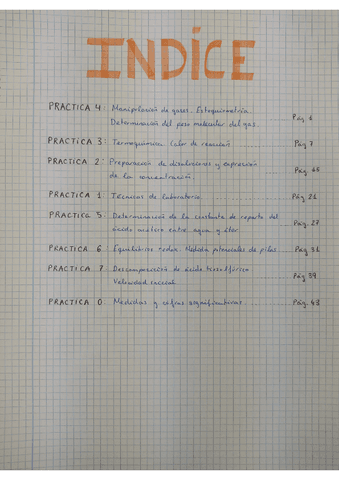 INDÍCE
PRACTICA 4: Manipulación de gases. Estequiometría.
Determinación del peso molecular del gas. Pág 6
PRACTICA 3: Termoquímica. Calor de reacción Pág 7
PRACTICA 2: Preparación de disoluciones y expresión
de la concentración Pág
PRACTICA 1: Técnicas de laboratorio Pág 21
PRACTICA 5: Determinación de la constante de reparto del
ácido entre agua y éter Pág. 27
PRACTICA 6: Equilibrios redox. Medida potenciales de pilas Pág 31
PRACTICA 7: Descomposición de ácido tiosulfúrico
Velocidad reacción Pág 39
PRACTICA 0: Medidas y cifras significativas Pág. 43